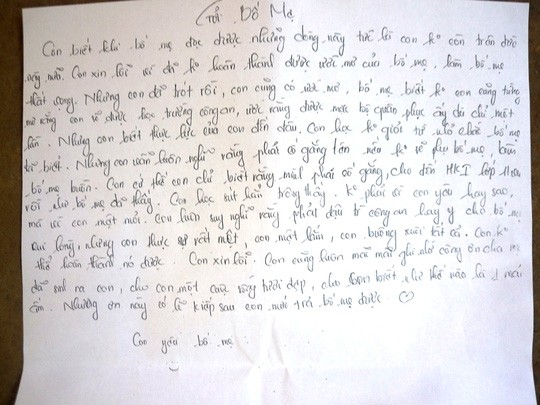 Gửi Bố Mẹ
Con biết khi bố mẹ đọc được những dòng này tức là con ko còn trên đời
này nữa. Con xin lỗi vì đã ko hoàn thành được ước mơ của bố mẹ, làm bố mẹ
thất vọng. Nhưng con đã trót rồi, con cũng có ước mơ, bố mẹ biết ko con cũng từng
mơ rằng con sẽ được học trường công an, ước rằng được mặc bộ quân phục ấy dù chỉ một
lần. Nhưng con biết thực lực của con đến đâu. Con học ko giỏi từ nhỏ chắc bố mẹ
đã biết. Nhưng con luôn luôn nghĩ rằng phải cố gắng lên nếu ko sẽ phụ bố mẹ, làm
bố mẹ buồn. Con cứ thế con chỉ biết rằng mình phải cố gắng, cho đến HKI lớp
rồi như bố mẹ đã thấy. Con học sút hẳn trông thấy. ko phải vì con yêu hay sao
mà vì con mệt mỏi. Con luôn suy nghĩ rằng phải đậu trường công an hay y cho bố mẹ
vui lòng, nhưng con thực sự rất mệt, con mệt lắm, con buông xuôi tất cả. Con ko
thể hoàn thành nó được. Con xin lỗi. Con cũng luôn mãi mãi ghi nhớ công ơn cha mẹ
đã sinh ra con, cho con một cuộc sống tươi đẹp, cho con biết như thế nào là 1 mái
ấm. Nhưng ơn này có lẽ kiếp sau con mới trả bố mẹ được
Con yêu bố mẹ